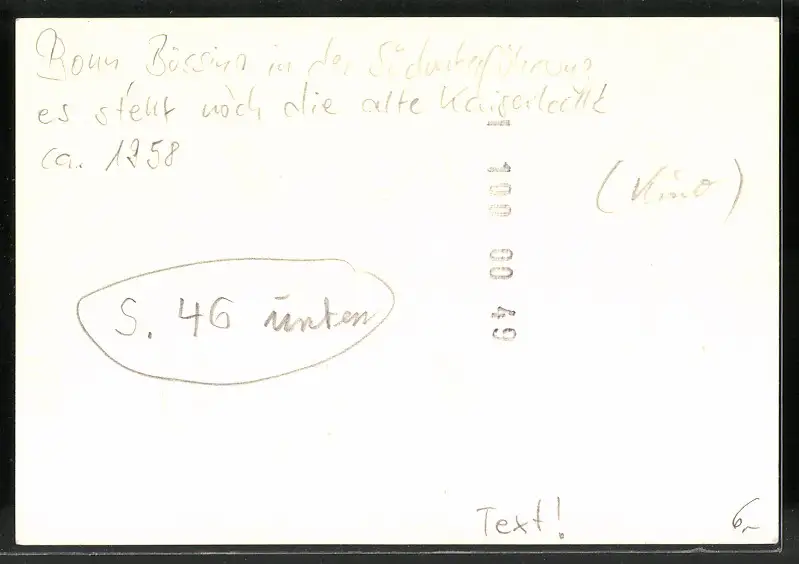 Bonn, Büssing in der Südunterführung
es steht noch die alte Kaiserhalle
ca. 1958
(Kino)
1 100 00 49
S. 46 unten
Text!
6,-